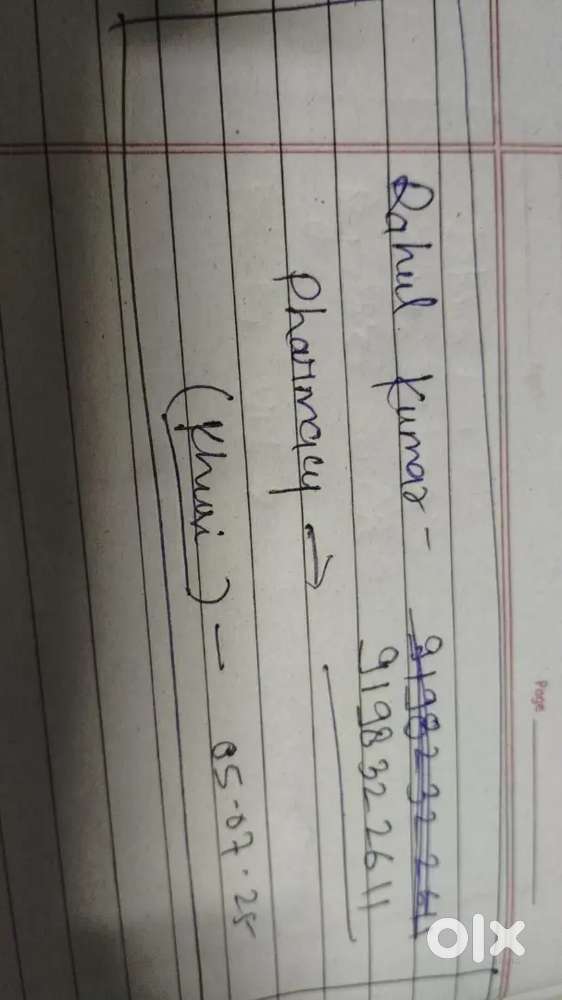 Page
Rahul Kumar - 9198232261
9198322611
Pharmacy →
(Khusi) - 05-07-25
olx